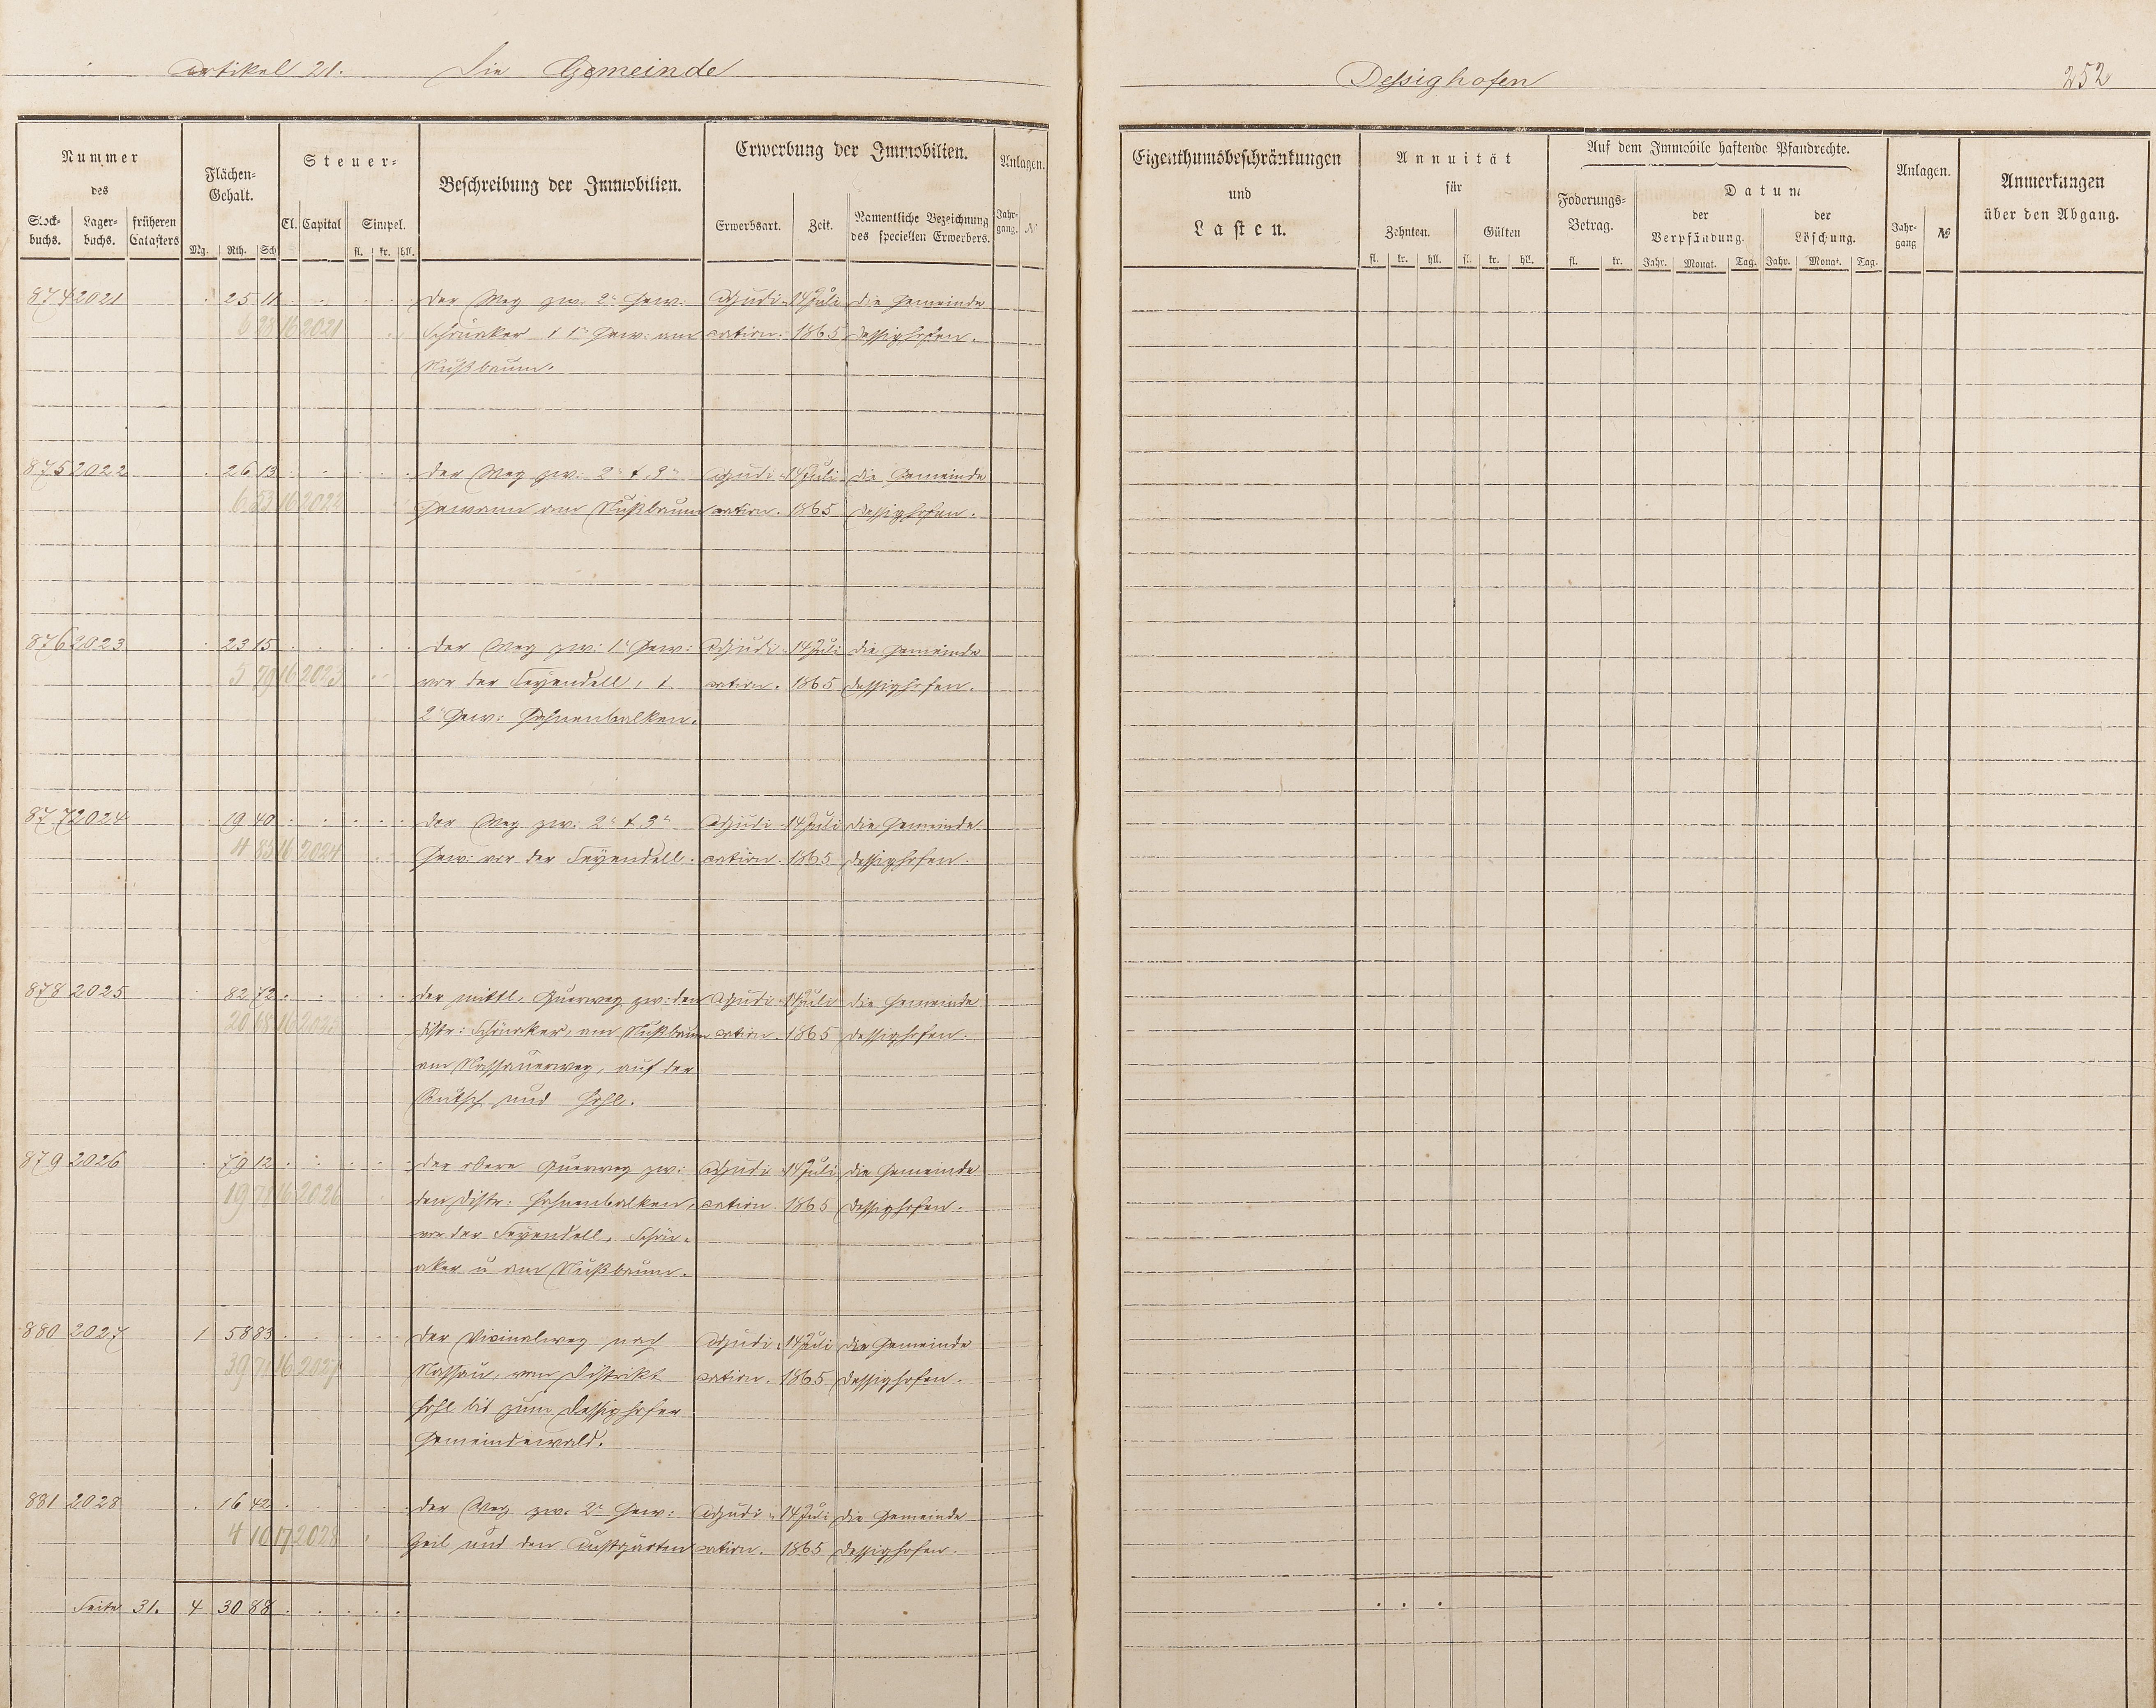 Artikel 21. Die Gemeinde
Dessighofen 252
Nummer des
Stock- buchs. Lager- buchs. früheren Catasters
Flächen- Gehalt.
Mg. Rth. Sch
Steuer-
Cl. Capital Simpel.
fl. kr. hll.
Beschreibung der Immobilien.
Erwerbung der Immobilien.
Erwerbsart. Zeit. Namentliche Bezeichnung des speciellen Erwerbers.
Anlagen.
Jahr- gang. №
Eigenthumsbeschränkungen
und
Lasten.
Annuität
für
Zehnten. Gülten
fl. kr. hll. fl. kr. hll.
Auf dem Immobile haftende Pfandrechte.
Foderungs- Betrag.
fl. kr.
Datum
der Verpfändung. der Löschung.
Jahr. Monat. Tag. Jahr. Monat. Tag.
Anlagen.
Jahr- gang №
Anmerkungen
über den Abgang.
874 2021 . 25 11 . . . . . der Weg zw. 2r Gew: Adjudi- 14 Juli die Gemeinde
6 28 16 2021 Schönaker & 1r Gew: am cation. 1865 Dessighofen.
Nußbaum.
875 2022 . 26 13 . . . . . der Weg zw: 2r & 3r Adjudi- 14 Juli die Gemeinde
6 53 16 2022 Gewann am Nußbaum cation. 1865 Dessighofen.
876 2023 . 23 15 . . . . . der Weg zw: 1r Gew: Adjudi- 14 Juli die Gemeinde
5 79 16 2023 vor der Seyendell, & cation. 1865 Dessighofen.
2r Gew: Hahnenbalken.
877 2024 . 19 40 . . . . . der Weg zw. 2r & 3r Adjudi- 14 Juli die Gemeinde
4 85 16 2024 Gew: vor der Seyendell. cation. 1865 Dessighofen.
878 2025 . 82 72 . . . . . der mittl. Querweg zw: den Adjudi- 14 Juli die Gemeinde
20 68 16 2025 Distr: Schönaker, am Nußbaum cation. 1865 Dessighofen.
am Nassauerweg, auf der
Rutsch und Hohl.
879 2026 . 79 12 . . . . . der obere Querweg zw: Adjudi- 14 Juli die Gemeinde
19 78 16 2026 den Distr: Hahnenbalken, cation. 1865 Dessighofen.
vor der Seyendell, Schön-
aker u am Nußbaum.
880 2027 1 58 83 . . . . . der Vicinalweg nach Adjudi- 14 Juli die Gemeinde
39 71 16 2027 Nassau, vom Distrikt cation. 1865 Dessighofen.
Hohl bis zum Dessighofer
Gemeindewald.
881 2028 . 16 42 . . . . . der Weg zw. 2r Gew: Adjudi- 14 Juli die Gemeinde
4 10 17 2028 und den cation. 1865 Dessighofen.
Seite 31. 4 30 88 . . . . .
. . .